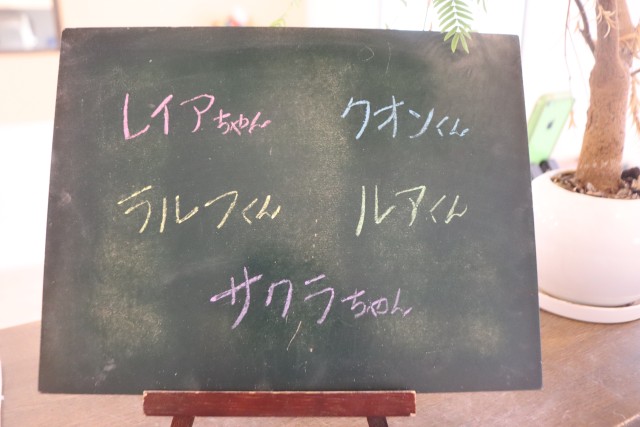 レイアちゃん クオンくん
ラルフくん ルアくん
サクラちゃん